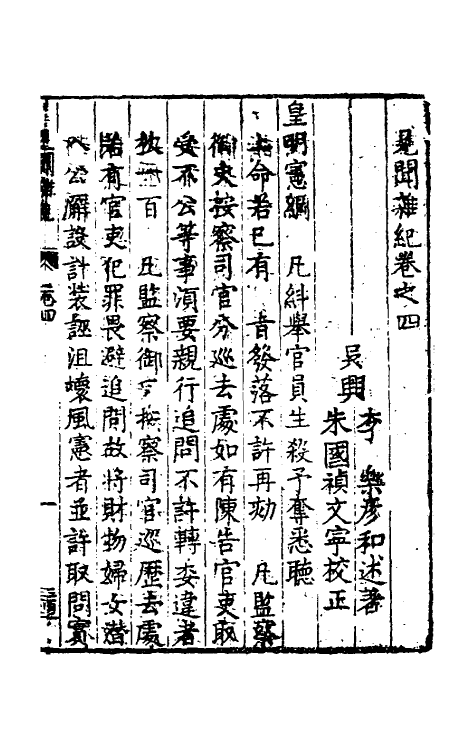 見聞雜紀卷之四
吳興
李樂彥和述著
朱國禎文寧校正
皇明憲綱 凡糾舉官員生殺予奪悉聽
命若已有 旨發落不許再劾 凡監察
御史按察司官分巡去處如有陳告官吏取
受不公等事須要親行追問不許轉委違者
杖一百 凡監察御史按察司官巡歷去處
若有官吏犯罪畏避追問故將財物婦女潛
入公廨設計裝誣沮壞風憲者並許取問實
見聞雜紀
卷四
一